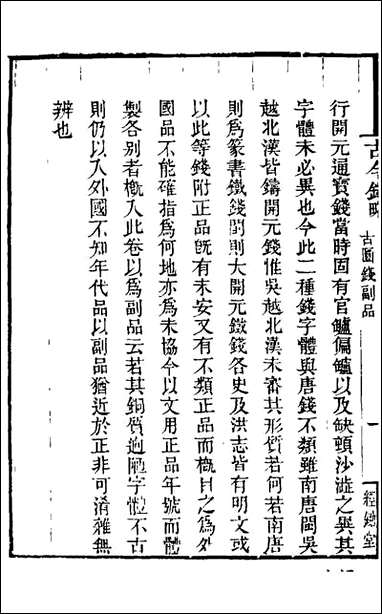 古今錢略
古圜錢副品
一
經緣堂
行開元通寶錢當時固有官鑪偏鑪以及缺頓沙澁之異其
字體未必異也今此二種錢字體與唐錢不類雖南唐閩吳
越北漢皆鑄開元錢惟吳越北漢未審其形質若何若南唐
則爲篆書鐵錢閩則大開元鐵錢各史及洪志皆有明文或
以此等錢附正品旣有未安又有不類正品而槪目之爲外
國品不能確指爲何地亦爲未協今以文用正品年號而體
製各別者槪入此卷以爲副品云若其銅質逈陋字體不古
則仍以入外國不知年代品以副品猶近於正非可淆雜無
辨也